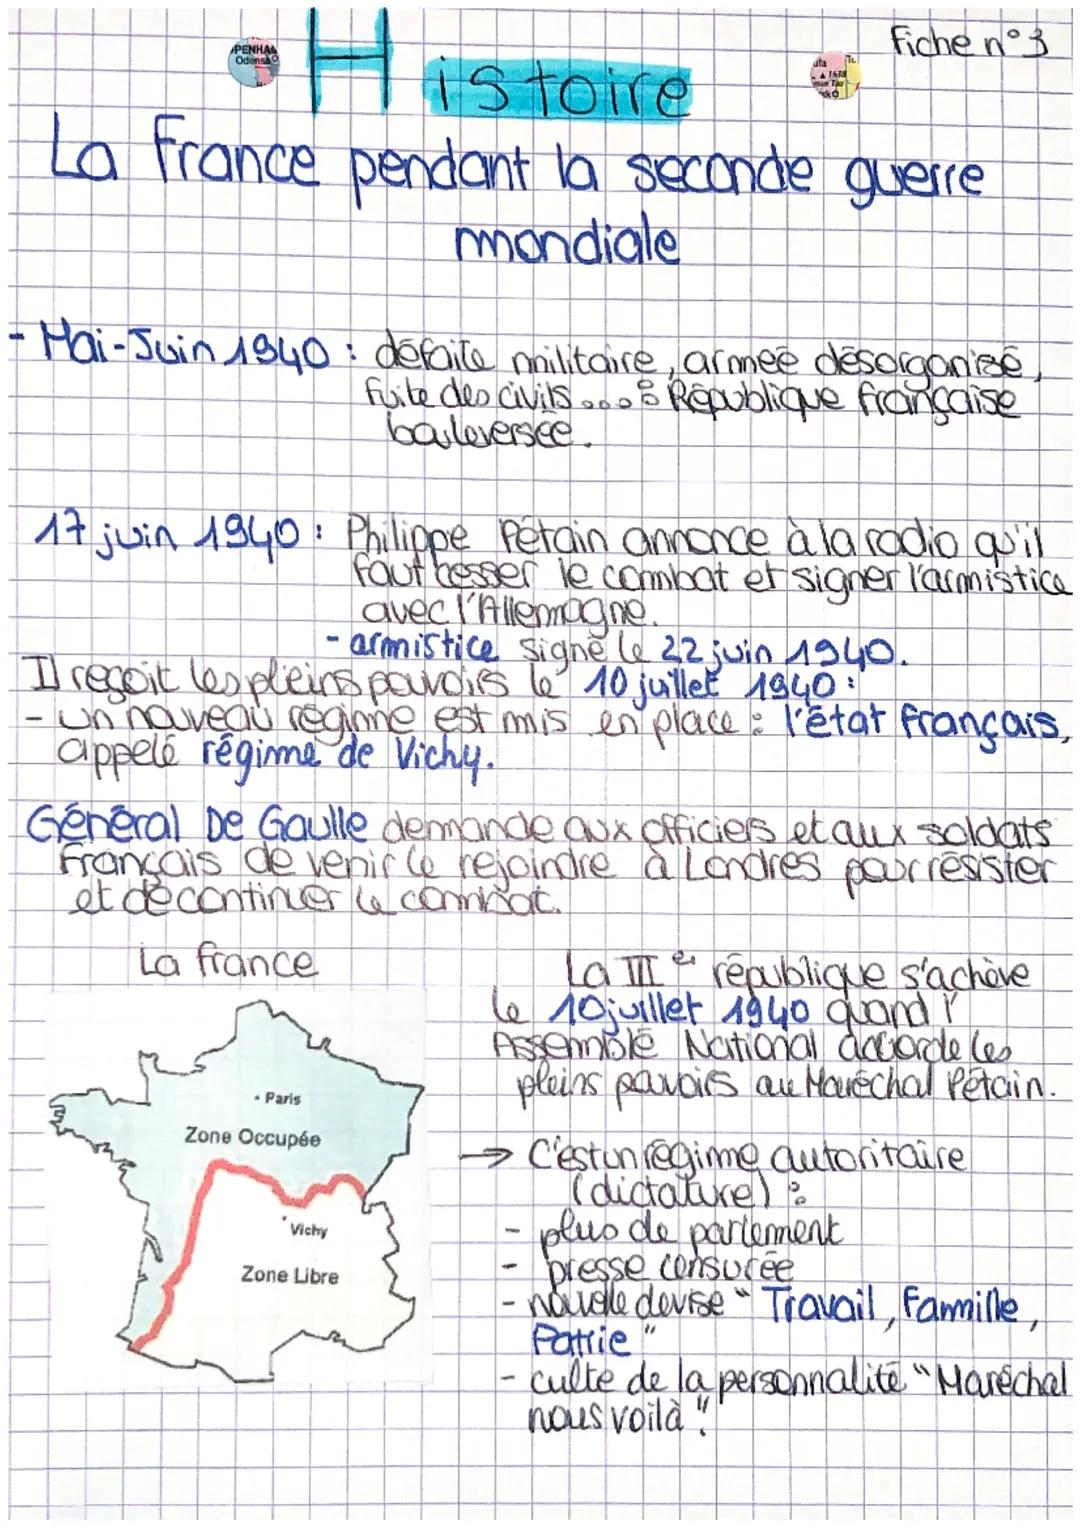 Fiche n°3
PENHAG
Odense
Histoire
ufa
To
1638
La France pendant la seconde guerre
mondiale
- Mai-Juin 1940 : défaite militaire, armée désorganisé,
fuite des civils ... : République française
bouleversée.
17 juin 1940 : Philippe Pétain annonce à la radio qu'il
faut cesser le combat et signer l'armistice
avec l'Allemagne.
- armistice signé le 22 juin 1940.
Il reçoit les pleins pouvoirs le 10 juillet 1940 :
- un nouveau régime est mis en place : l'état français,
appelé régime de Vichy.
Général De Gaulle demande aux officiers et aux soldats
français de venir le rejoindre à Londres pour résister
et de continuer le combat.
La france
Paris
Zone Occupée
Vichy
Zone Libre
La IIIe république s'achève
le 10 juillet 1940 quand l'
Assemblé National accorde les
pleins pouvoirs au Maréchal Pétain.
→ C'est un régime autoritaire
(dictature) :
- plus de parlement
- presse censurée
- nouvelle devise " Travail, Famille,
Patrie "
- culte de la personnalité " Maréchal
nous voilà "